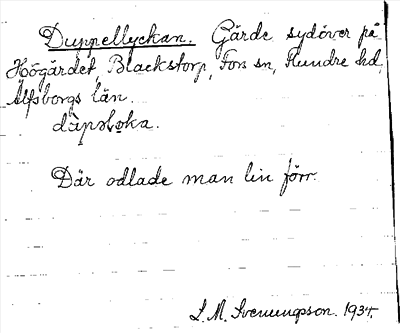 Duppellyckan. Gärde sydöver på
Höögärdet, Blackstorp, Fors sn, Flundre hd,
Älfsborgs län.
Där odlade man lin förr.
L. M. Svenungsson. 1934.